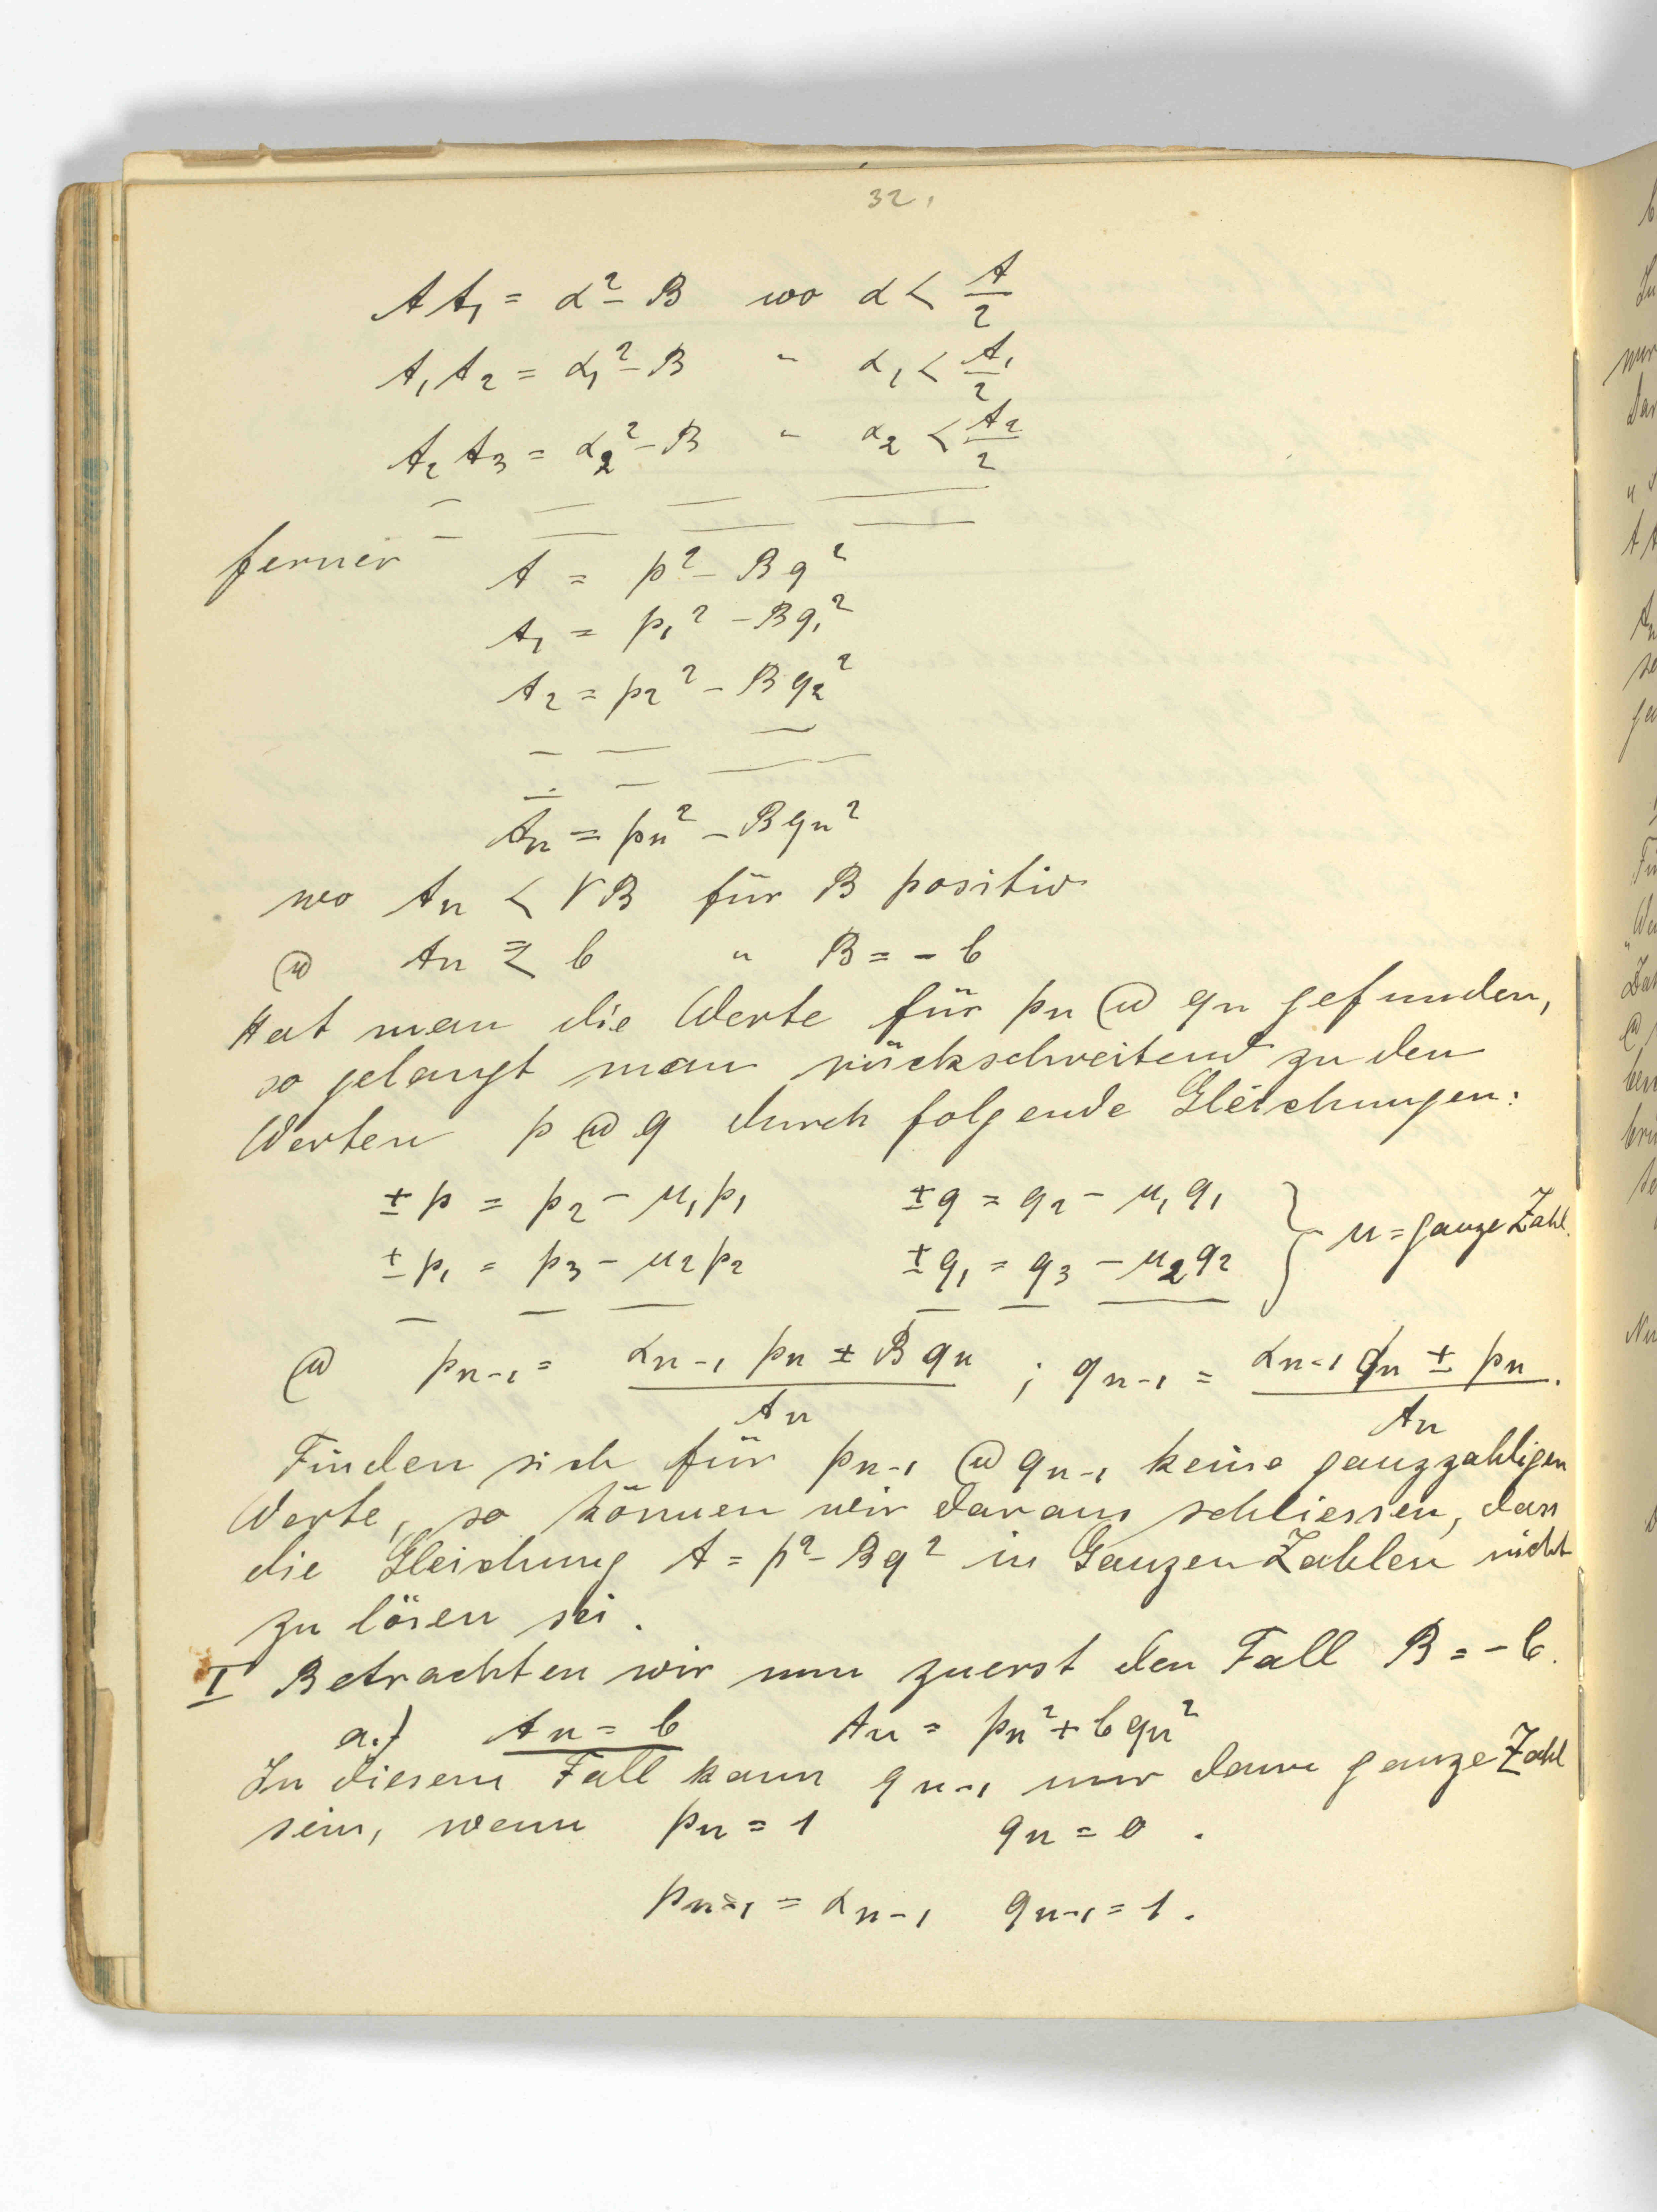 32.
A A₁ = α² - B wo α < A/2
A₁ A₂ = α₁² - B " α₁ < A₁/2
A₂ A₃ = α₂² - B " α₂ < A₂/2
ferner A = p² - Bq²
A₁ = p₁² - Bq₁²
A₂ = p₂² - Bq₂²
Aₙ = pₙ² - Bqₙ²
wo Aₙ < √B für B positiv
@ Aₙ ⪌ b " B = - b
Hat man die Werte für pₙ @ qₙ gefunden,
so gelangt man rückschreitend zu den
Werten p @ q durch folgende Gleichungen:
± p = p₂ - μ₁p₁ ± q = q₂ - μ₁q₁
± p₁ = p₃ - μ₂p₂ ± q₁ = q₃ - μ₂q₂ } μ = ganze Zahl.
@ pₙ₋₁ = (αₙ₋₁ pₙ ± B qₙ)/Aₙ ; qₙ₋₁ = (αₙ₋₁ qₙ ± pₙ)/Aₙ.
Finden sich für pₙ₋₁ @ qₙ₋₁ keine ganzzahligen
Werte, so können wir daraus schliessen, dass
die Gleichung A = p² - Bq² in Ganzen Zahlen nicht
zu lösen sei.
I Betrachten wir nun zuerst den Fall B = - b.
a.) Aₙ = b Aₙ = pₙ² + bqₙ²
In diesem Fall kann qₙ₋₁ nur dann ganze Zahl
sein, wenn pₙ = 1 qₙ = 0 .
pₙ₋₁ = αₙ₋₁ qₙ₋₁ = 1 .